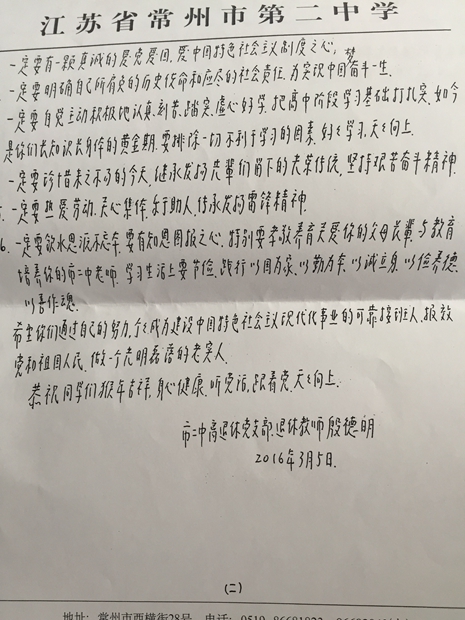 江苏省常州市第二中学
一定要有一颗真诚的爱党爱国、爱中国特色社会主义制度之心;
一定要明确自己所肩负的历史使命和应尽的社会责任,为实现中国梦奋斗一生.
一定要自觉主动积极地认真、刻苦、踏实、虚心好学,把高中阶段学习基础打扎实,如今
是你们长知识长身体的黄金期,要排除一切不利于学习的因素,好好学习,天天向上.
一定要珍惜来之不易的今天,继承发扬先辈们留下的光荣传统,坚持艰苦奋斗精神.
一定要热爱劳动、关心集体、乐于助人,传承发扬雷锋精神.
6. 一定要饮水思源不忘本,要有知恩图报之心,特别要孝敬养育关爱你的父母长辈,与教育
培养你的市二中老师.学习生活上要节俭,践行以国为家、以勤为本、以诚立身、以俭养德、
以善作魂.
希望你们通过自己的努力,个个成为建设中国特色社会主义现代化事业的可靠接班人,报效
党和祖国人民,做一个光明磊落的老实人.
恭祝同学们猴年吉祥,身心健康,听党话,跟着党,天天向上.
市二中离退休党支部.退休教师殷德明
2016年3月5日.
(二)
地址:常州市西横街28号 电话:0519-86681822